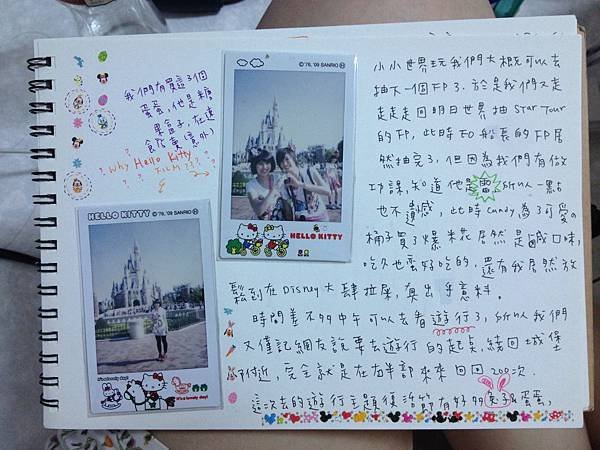 我們有買這3個
蛋蛋,他是糖
果盒子,在速
食店買(意外)
? why Hello Kitty
FILM???
© '76, '09 SANRIO
HELLO KITTY
HELLO KITTY © '76, '09 SANRIO
It's a lovely day!
It's a lovely day!
小小世界玩我們大概可以去
抽下一個FP了。於是我們又走
走走走回明日世界抽 Star Tour
的FP,此時EO船長的FP居
然抽完了,但因為我們有做
功課,知道他是雷所以一點
也不遺憾,此時candy為了可愛の
桶子買了爆米花居然是鹹口味,
吃久也蠻好吃的,還有我居然放
鬆到在Disney大肆拉屎,真出乎意料。
時間差不多中午可以去看遊行了,所以我們
又僅記網友說要去遊行的起點,繞回城堡
附近,完全就是在右半部來來回回200次.
這次去的遊行主題復活節有好多兔子&蛋蛋,